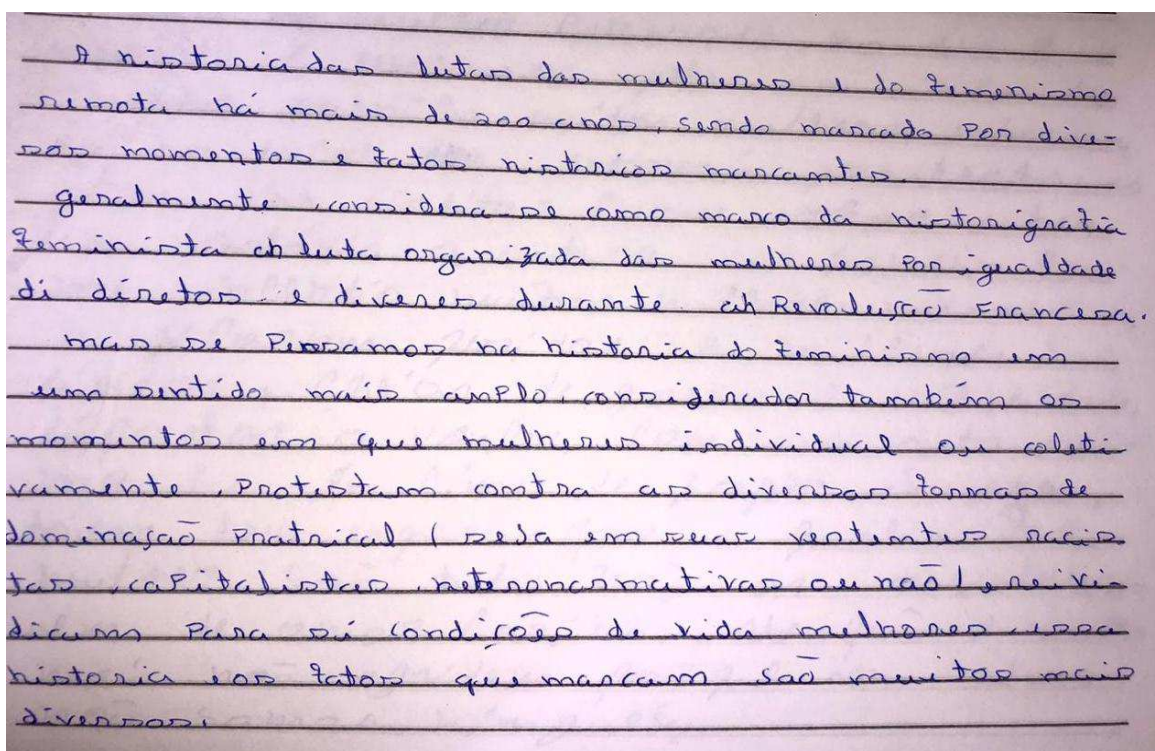 A historia das lutas das mulheres e do femenismo
remota há mais de 200 anos, sendo marcado por dive-
sos momentos e fatos historicos marcantes.
geralmente, considera-se como marco da historigrafia
feminista ah luta organizada das mulheres por igualdade
di diretos e diveres durante ah Revolução Francesa.
mas se Pensamos na historia do feminismo em
um sentido mais amplo, considerador também os
momentos em que mulheres individual ou coleti
vamente, Protestam contra as diversas formas de
dominação Pratrical ( seja em suas vertentes racis
tas, capitalistas, heteroncomativas ou não ) e reivi-
dicam Para si condições de vida melhores, essa
historia e os fatos que marcam são muitos mais
diversos.